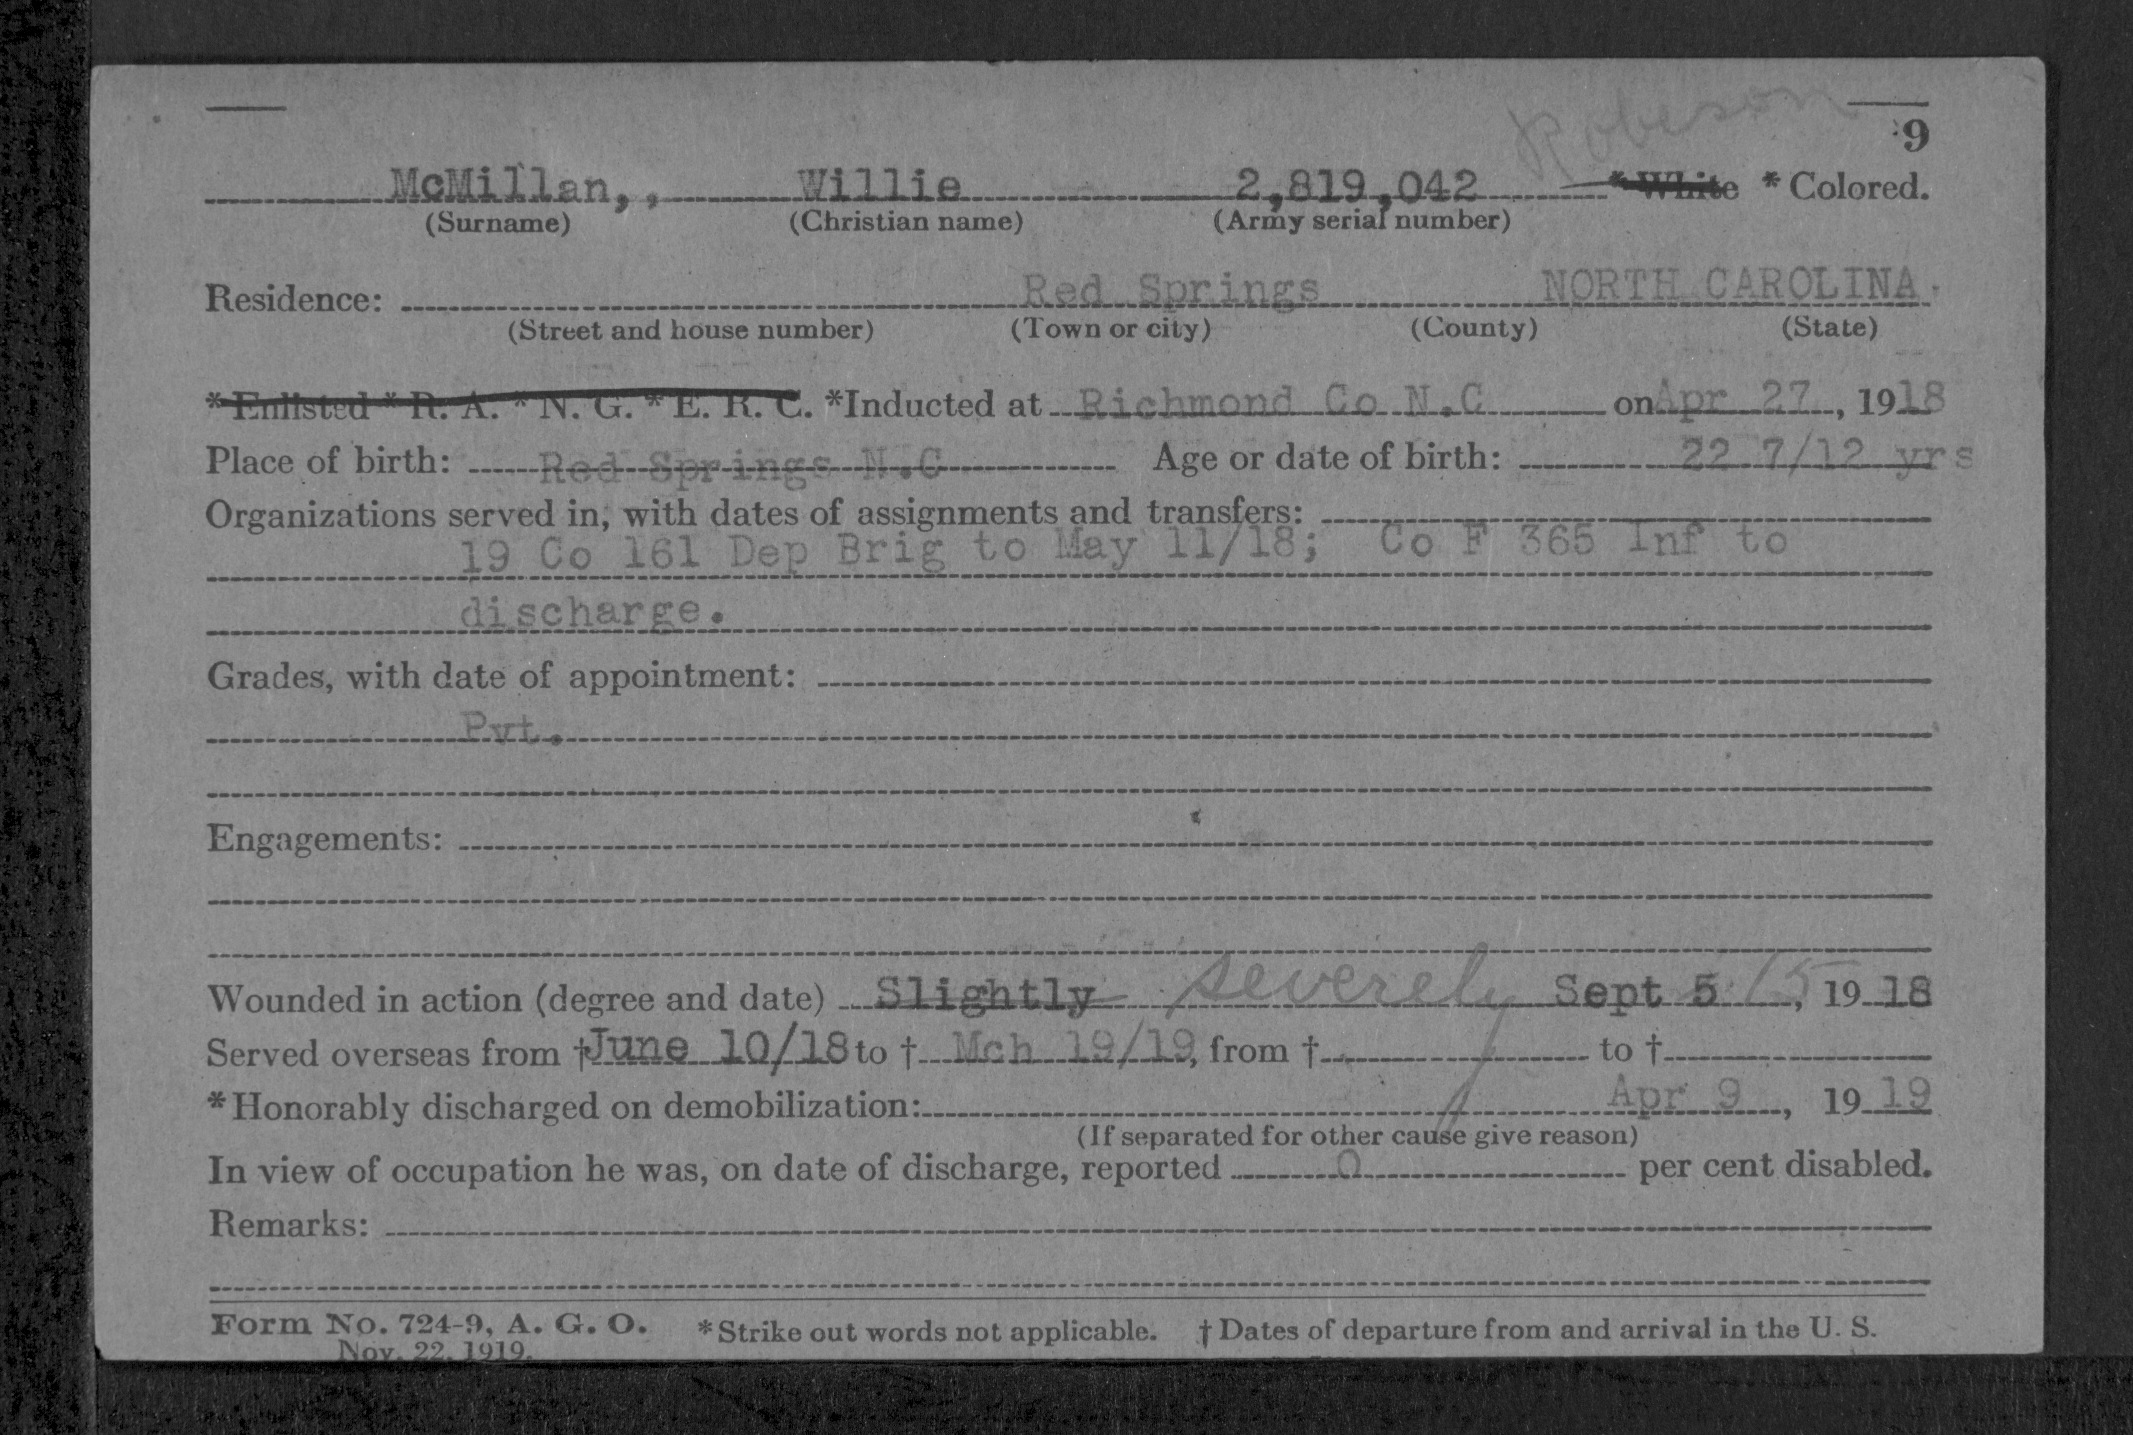 Robeson
9
McMillan,, Willie 2,819,042 * White * Colored.
(Surname) (Christian name) (Army serial number)
Residence: Red Springs NORTH CAROLINA.
(Street and house number) (Town or city) (County) (State)
*Enlisted * R. A. * N. G. * E. R. C. *Inducted at Richmond Co N.C on Apr 27, 1918
Place of birth: Red Springs N.C Age or date of birth: 22 7/12 yrs
Organizations served in, with dates of assignments and transfers:
19 Co 161 Dep Brig to May 11/18; Co F 365 Inf to
discharge.
Grades, with date of appointment:
Pvt.
Engagements:
Wounded in action (degree and date) Slightly severely Sept 5 15, 19 18
Served overseas from † June 10/18 to † Mch 19/19, from † to †
*Honorably discharged on demobilization: Apr 9, 19 19
(If separated for other cause give reason)
In view of occupation he was, on date of discharge, reported 0 per cent disabled.
Remarks:
Form No. 724-9, A. G. O. *Strike out words not applicable. † Dates of departure from and arrival in the U. S.
Nov. 22, 1919.